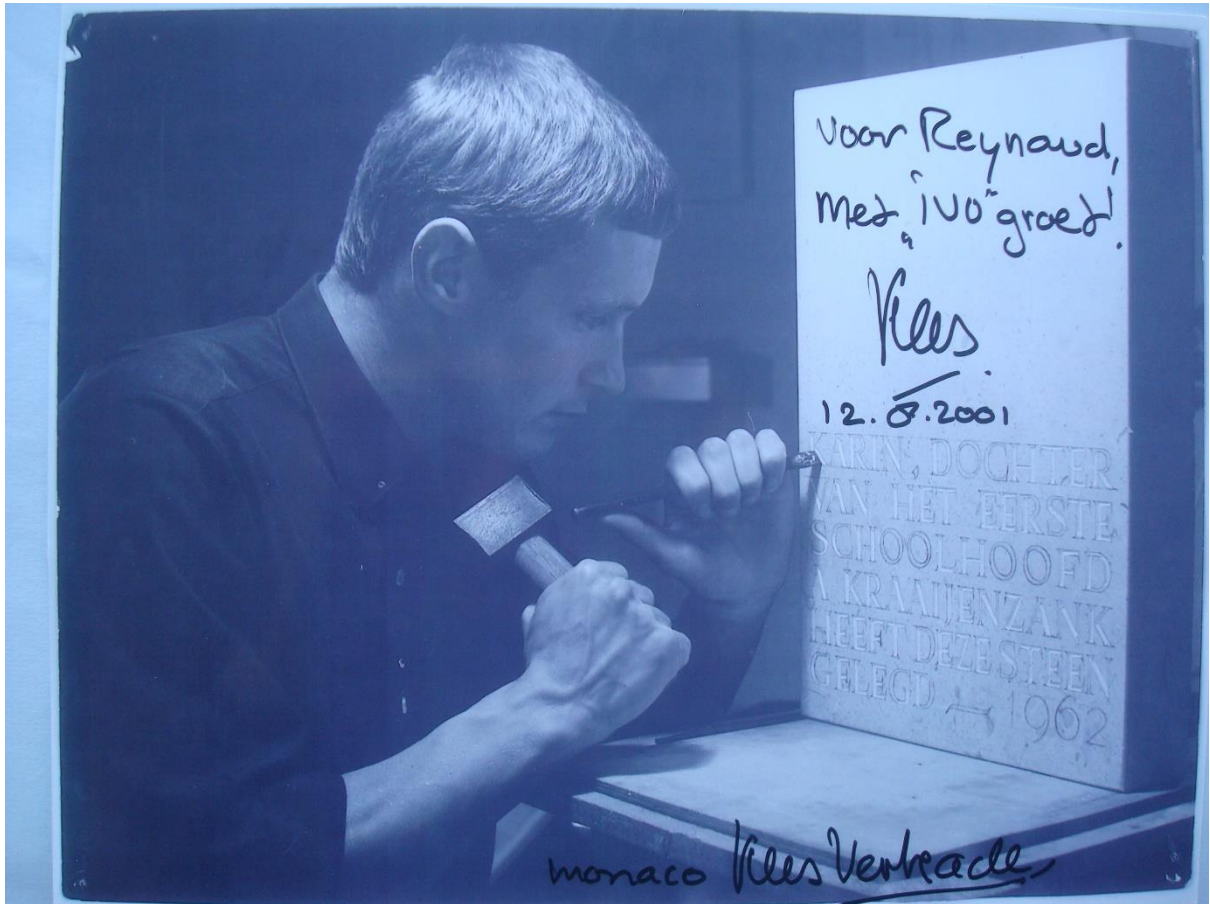 voor Reynaud,
met „ivo” groet!
Kees.
12.8.2001
KARIN, DOCHTER
VAN HET EERSTE
SCHOOLHOOFD
A KRAAIJENZANK
HEEFT DEZE STEEN
GELEGD — 1962
monaco Kees Verkade